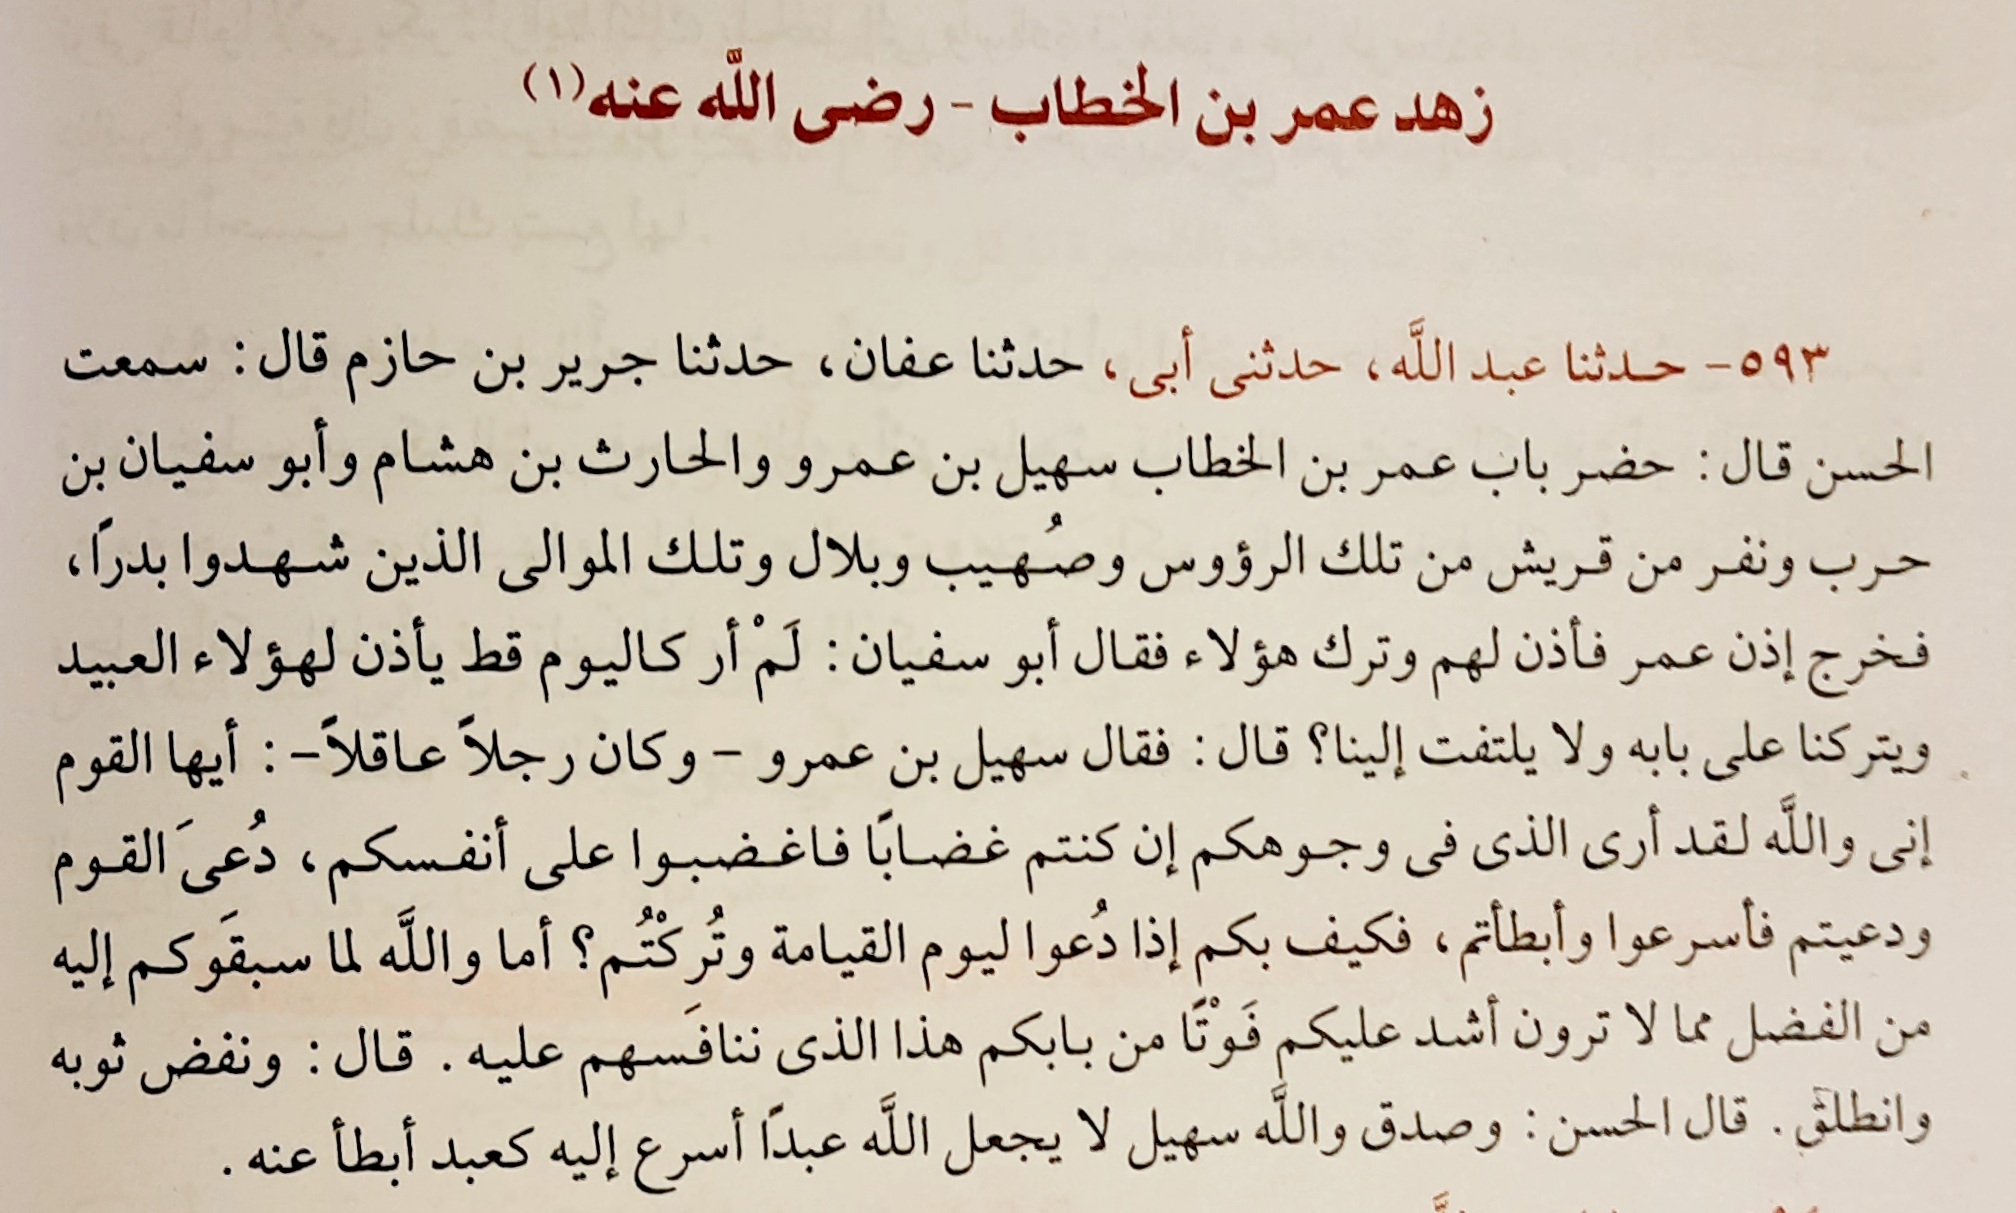 زهد عمر بن الخطاب - رضى اللَّه عنه(١)
٥٩٣- حدثنا عبد اللَّه، حدثنى أبى، حدثنا عفان، حدثنا جرير بن حازم قال: سمعت
الحسن قال: حضر باب عمر بن الخطاب سهيل بن عمرو والحارث بن هشام وأبو سفيان بن
حرب ونفر من قريش من تلك الرؤوس وصُهيب وبلال وتلك الموالى الذين شهدوا بدراً،
فخرج إذن عمر فأذن لهم وترك هؤلاء فقال أبو سفيان: لَمْ أر كاليوم قط يأذن لهؤلاء العبيد
ويتركنا على بابه ولا يلتفت إلينا؟ قال: فقال سهيل بن عمرو - وكان رجلاً عاقلاً-: أيها القوم
إنى واللَّه لقد أرى الذى فى وجوهكم إن كنتم غضابًا فاغضبوا على أنفسكم، دُعىَ القوم
ودعيتم فأسرعوا وأبطأتم، فكيف بكم إذا دُعوا ليوم القيامة وتُركْتُم؟ أما واللَّه لما سبقَوكم إليه
من الفضل مما لا ترون أشد عليكم فَوْتًا من بابكم هذا الذى ننافَسهم عليه. قال: ونفض ثوبه
وانطلق. قال الحسن: وصدق واللَّه سهيل لا يجعل اللَّه عبدًا أسرع إليه كعبد أبطأ عنه.